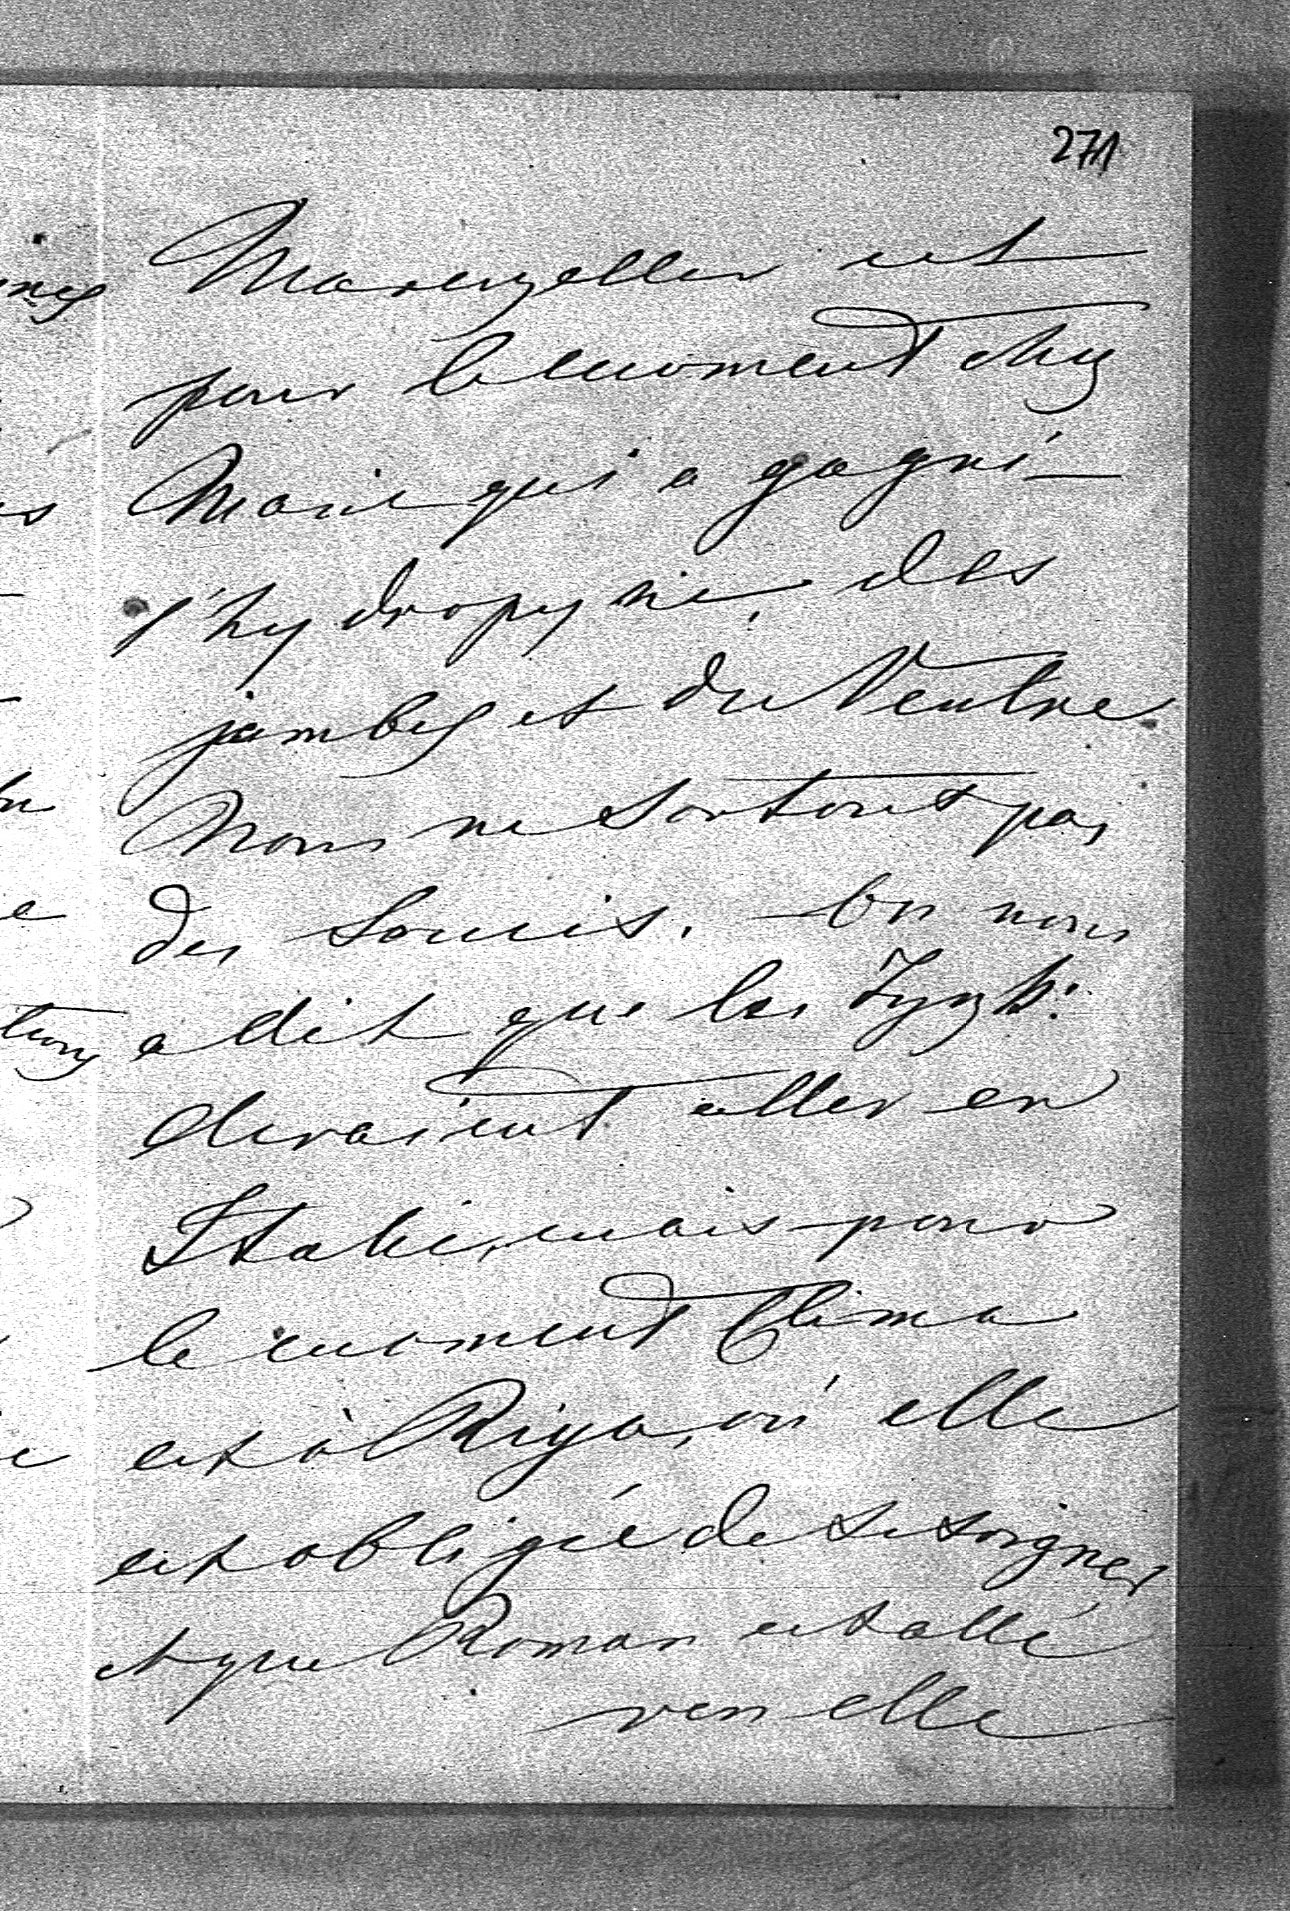 271
Marcyellen est
pour le moment chez
Marie qui a gagné
l'hydropysie, des
jambes et du Ventre
Nous ne sortont pas
des soucis. On nous
a dit que les Tyszk:
devaient aller en
Italie, mais pour
le moment Clima
est à Riga, où elle
est obligée de se soigner
et que Roman est allé
vers elle